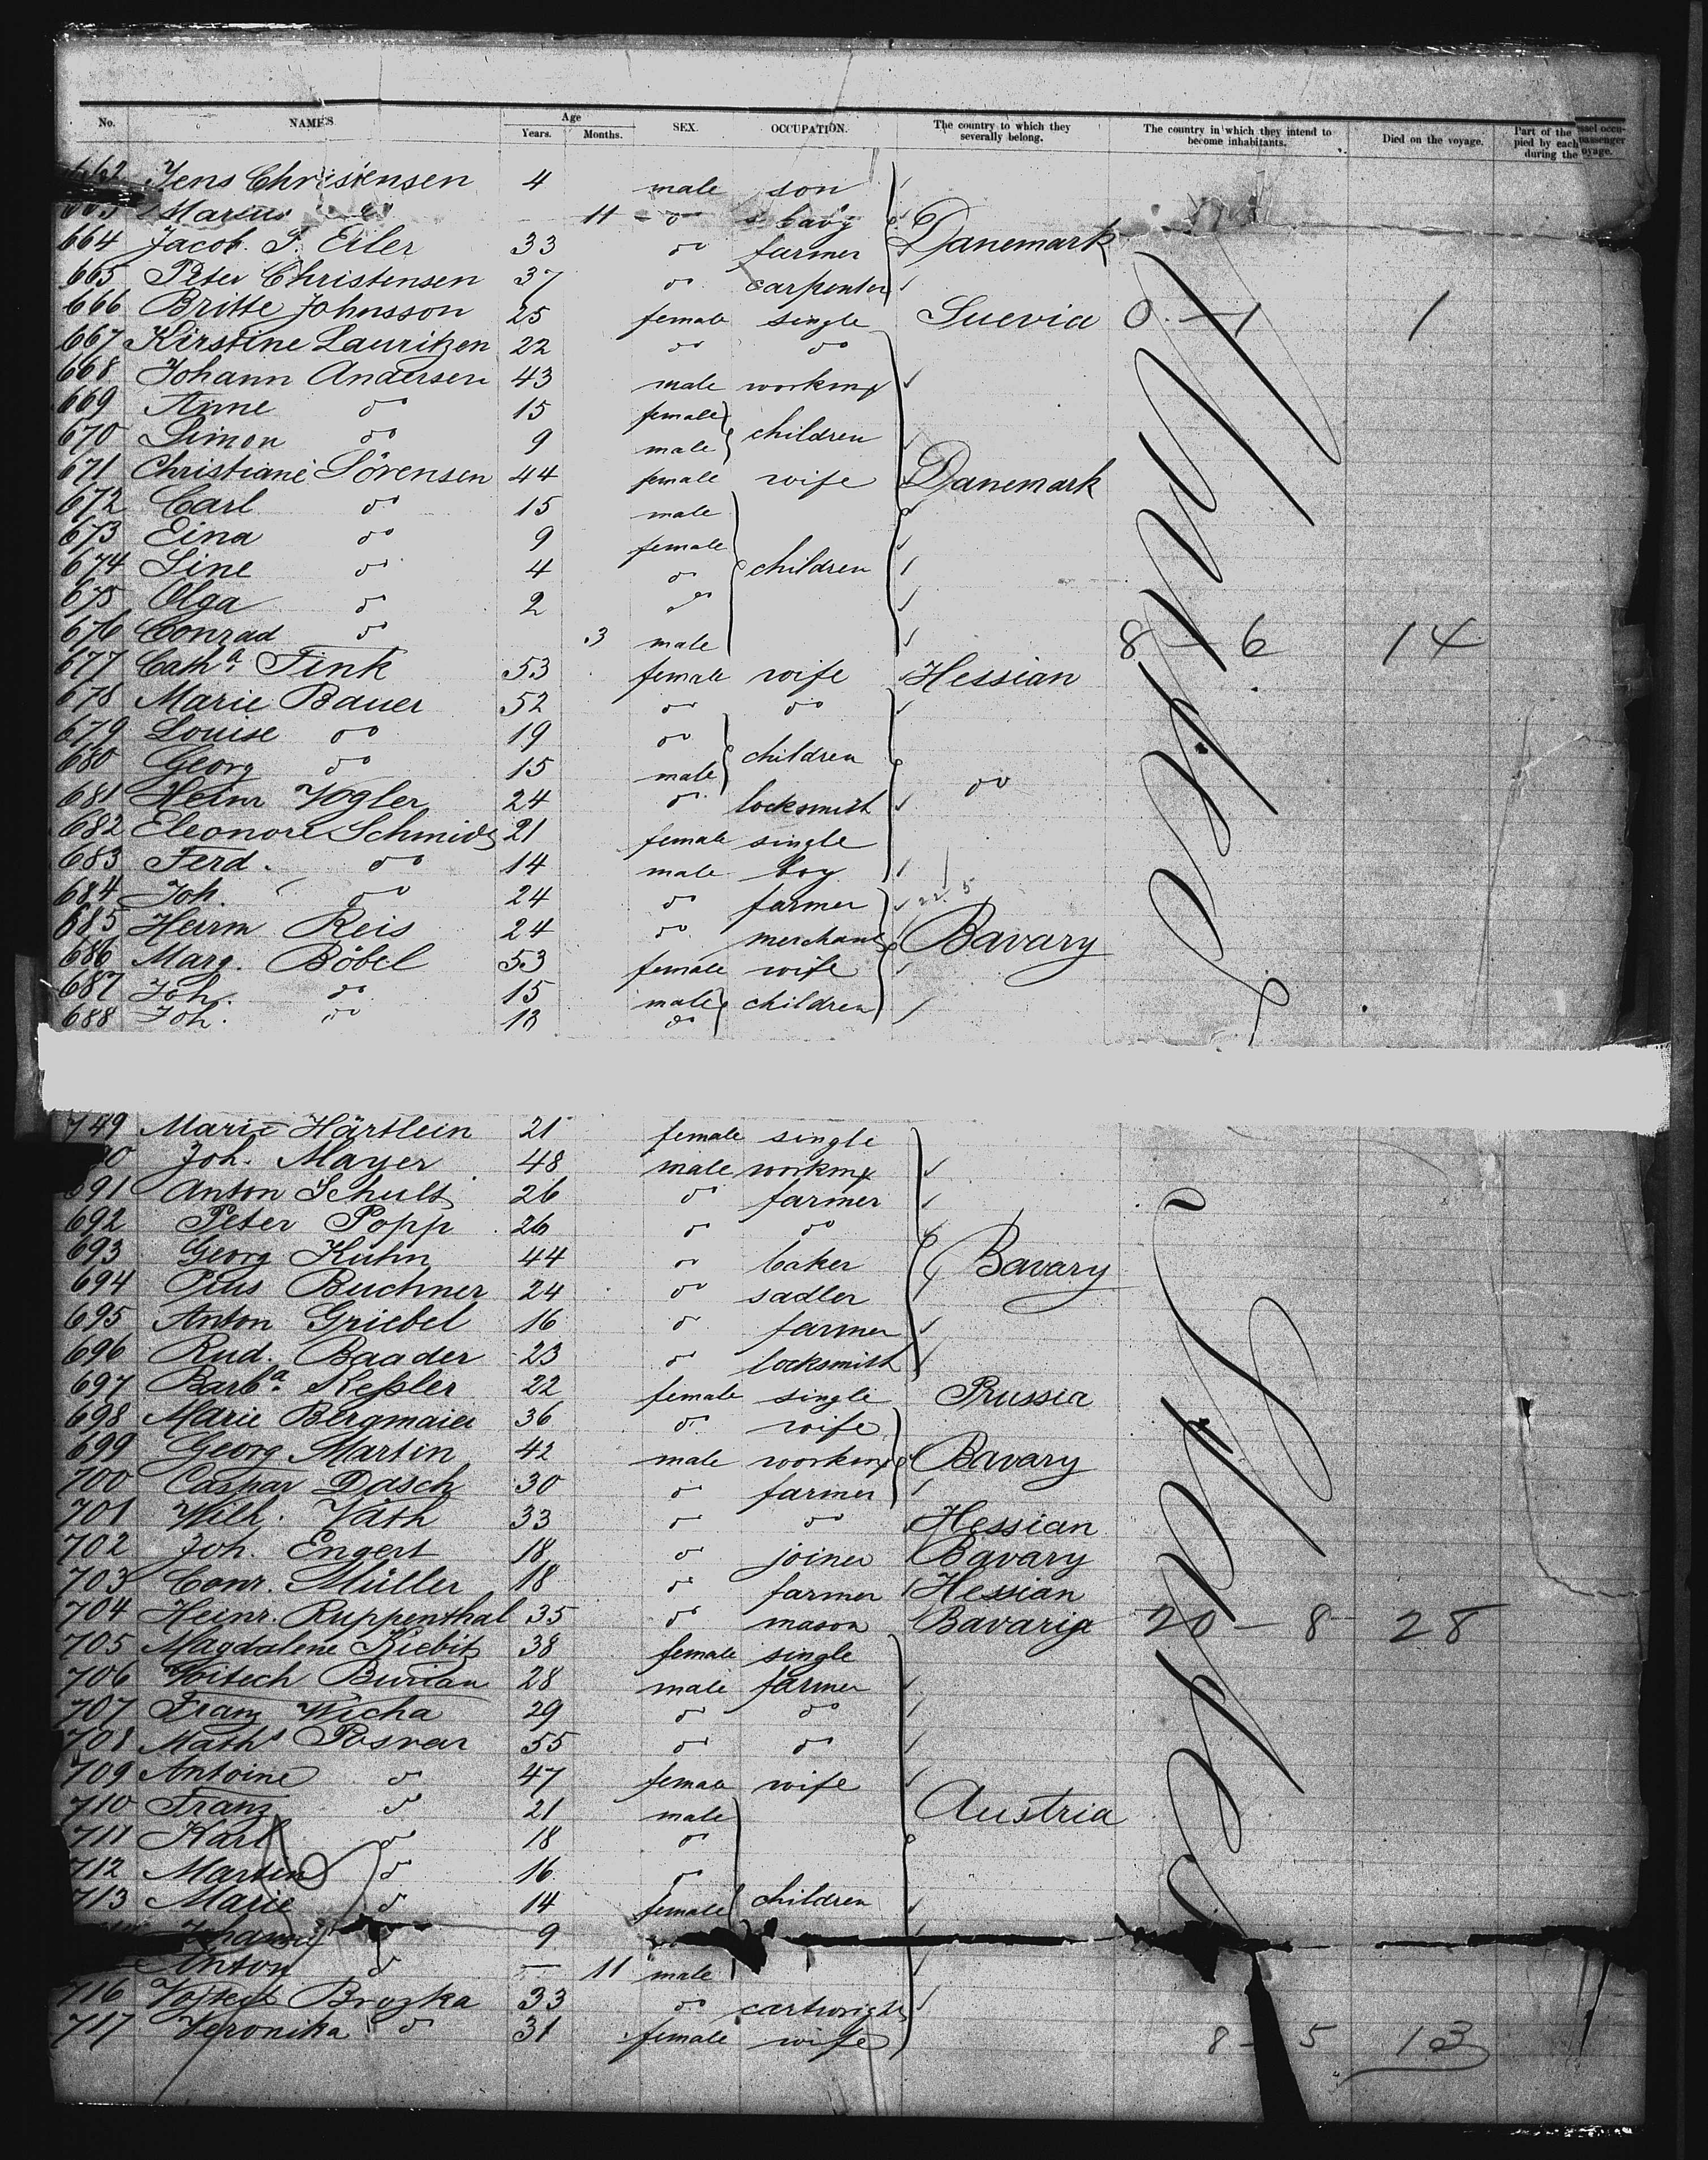 No. NAMES Age Years. Months. SEX. OCCUPATION. The country to which they severally belong. The country in which they intend to become inhabitants. Died on the voyage. Part of the pied by each during the ssel occu- passenger oyage.
662 Jens Christensen 4 male son
663 Marius do 11 do baby
664 Jacob Eiler 33 do farmer Danemark
665 Peter Christensen 37 do carpenter
666 Britte Johnsson 25 female single Suevia 0 - 1 1
667 Kirstine Lauritzen 22 do do
668 Johann Andersen 43 male working
669 Anne do 15 female
670 Simon do 9 male children
671 Christiane Sörensen 44 female wife Danemark
672 Carl do 15 male
673 Eina do 9 female
674 Line do 4 do children
675 Olga do 2 do
676 Conrad do 3 male 8 - 6 14
677 Catha. Fink 53 female wife Hessian
678 Marie Bauer 52 do do
679 Louise do 19 do
680 Georg do 15 male children
681 Heinr Vogler 24 do locksmith do
682 Eleonore Schmidt 21 female single
683 Ferd. do 14 male boy
684 Joh. do 24 do farmer
685 Heirm Reis 24 do merchant Bavary
686 Marg. Böbel 53 female wife
687 Joh. do 15 male children
688 Joh. do 13 do
749 Marie Härtlein 21 female single
90 Joh. Mayer 48 male working
691 Anton Schult 26 do farmer
692 Peter Popp 26 do do
693 Georg Kuhn 44 do baker Bavary
694 Pius Buchner 24 do sadler
695 Anton Griebel 16 do farmer
696 Rud. Baader 23 do locksmith
697 Barba. Keßler 22 female single Prussia
698 Marie Bergmaier 36 do wife
699 Georg Martin 42 male working Bavary
700 Caspar Dasch 30 do farmer
701 Wilh. Väth 33 do do Hessian
702 Joh. Engert 18 do joiner Bavary
703 Conr. Müller 18 do farmer Hessian
704 Heinr. Ruppenthal 35 do mason Bavaria 20 - 8 28
705 Magdalene Kiebitz 38 female single
706 Woitech Burian 28 male farmer
707 Franz Wicha 29 do do
708 Maths Posvar 55 do do
709 Antoine do 47 female wife
710 Franz do 21 male Austria
711 Karl do 18 do
712 Martin do 16 do
713 Marie do 14 female children
Johanna 9
Anton do 11 male
716 Brozka 33 do cartwright
717 Veronika do 31 female wife 8 - 5 13